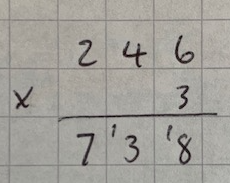 246
× 3
7¹3¹8